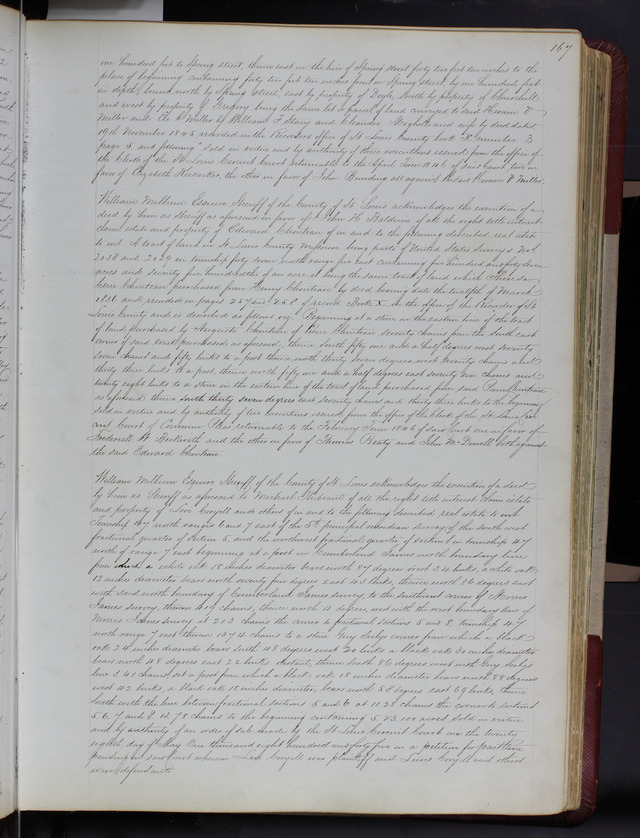 167
one hundred feet to Spring street, thence east on the line of Spring street forty two feet ten inches to the
place of beginning containing forty two feet ten inches front on Spring street, by one hundred feet
in depth, bound north by Spring street, east by property of Doyle, South by property of Churchill
and west by property of Gregory being the same lot or parcel of land conveyed to said Hiram V
Miller and by William F Stacy and Eleanor his wife by deed dated
19th November 1845 recorded in the Recorders office of St Louis County book number 3
page 5 and following" sold in virtue and by authority of three executions issued from the office of
the Clerk of the St Louis Circuit Court returnable to the April Term 1846 of said Court, two in
favor of Elizabeth the other in favor of John Bunding all against the said Hiram V Miller
William Milburn Esquire Sheriff of the County of St Louis acknowledges the execution of a
deed by him as Sheriff as aforesaid in favor of John H Baldwin of all the right title interest
claim estate and property of Edward Chouteau of in and to the following described real estate
to wit. A tract of land in St Louis County Missouri being parts of United States Surveys Nos
2038 and 2039 in township forty seven north range six east containing five hundred and fifty seven
acres and seventy five hundredths of an acre it being the same tract of land which
Chouteau purchased from Henry Chouteau by deed bearing date the twelfth of March
1836 and recorded on pages 257 and 258 of record Book X in the office of the Recorder of St
Louis County and is described as follows viz. Beginning at a stone in the eastern line of the tract
of land purchased by Auguste Chouteau of Pierre Chouteau seventy chains from the South east
corner of said tract purchased as aforesaid, thence South fifty one and a half degrees west seventy
seven chains and fifty links to a post thence north thirty seven degrees west seventy chains & bet
thirty three links to a post, thence north fifty one and a half degrees east seventy six chains and
twenty eight links to a stone in the eastern line of the tract of land purchased from said Pierre Chouteau
as aforesaid thence south thirty seven degrees east seventy chains and thirty three links to the beginning
sold in virtue and by authority of two executions issued from the office of the clerk of the St Louis Cir
cuit Court of Common Pleas returnable to the February Term 1846 of said Court one in favor of
Frederick W Beckwith and the other in favor of Thomas Keaty and John McDowell both against
the said Edward Chouteau.
William Milburn Esquire Sheriff of the County of St Louis acknowledges the execution of a deed
by him as Sheriff as aforesaid to Michael of all the right title interest claim estate
and property of Levi Coryell and others of in and to the following described real estate to wit
Township 47 north ranges 6 and 7 east of the 5th principal meridian survey of the south west
fractional quarter of Section 5, and the northwest fractional quarter of section 8 in township 47
north of range 7 east beginning at a post in Cumberland James north boundary line
from which a white oak 18 inches diameter bears north 87 degrees west 34 links, a white oak
12 inches diameter bears north twenty four degrees east 42 links, thence north 86 degrees east
with said north boundary of Cumberland James survey to the southwest corner of Morris
James survey, thence 4.04 chains, thence north 4 degrees, west with the west boundary line of
Morris James survey at 2.13 chains the corner to fractional sections 5 and 8, township 47
north range 7 east thence 18.74 chains to a stone Guy Seelys corner from which a black
oak 24 inches diameter bears south 48 degrees west 20 links a black oak 30 inches diameter
bears north 48 degrees east 22 links distant, thence south 86 degrees west with Guy Seelys
line 3.41 chains set a post from which a black oak 18 inches diameter bears north 85 degrees
west 42 links, a black oak 18 inches diameter, bears north 58 degrees east 69 links, thence
South with the line between fractional sections 5 and 6 at 11.28 chains the corner to sections
5 6 7 and 8 13.78 chains to the beginning containing 5 23.100 acres sold in virtue
and by authority of an order of sale made by the St Louis Circuit Court on the twenty
eighth day of May One thousand eight hundred and forty five in a petition for partition
pending in said court wherein Levi Coryell was plaintiff and Lewis Coryell and others
were defendants